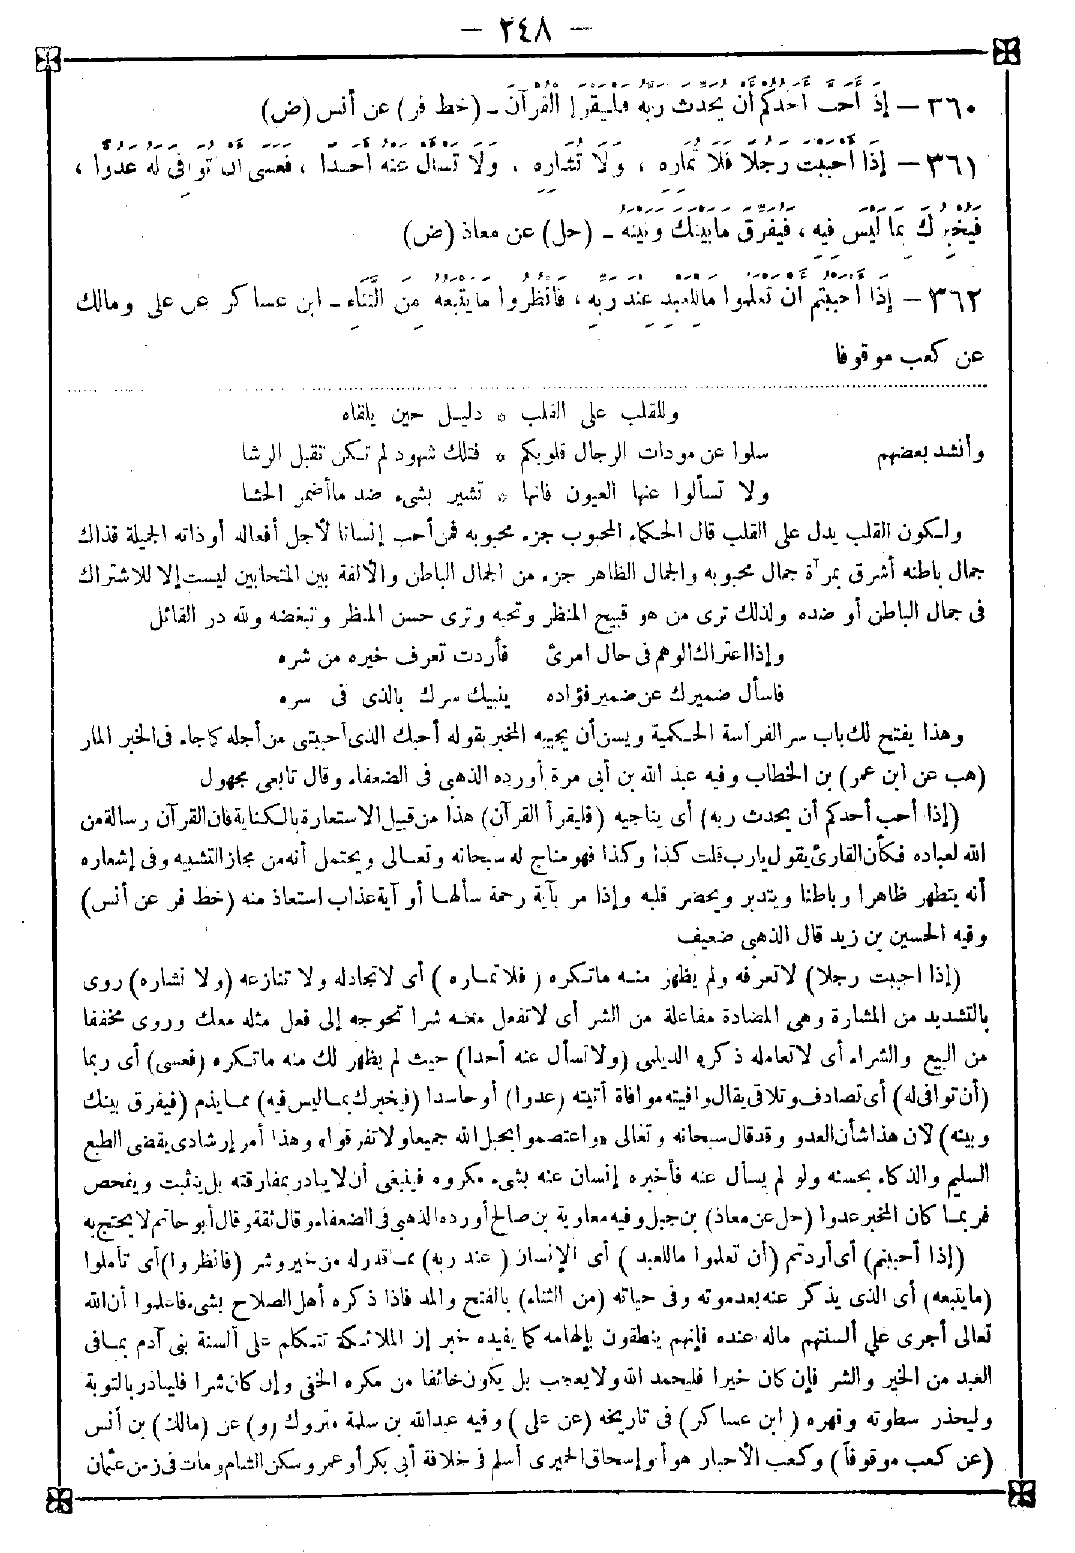 — ٢٤٨ —
٣٦٠ – إِذَا أَحَبَّ أَحَدُكُمْ أَنْ يُحَدِّثَ رَبَّهُ فَلْيَقْرَإِ الْقُرْآنَ - (خط فر) عن أنس (ض)
٣٦١ – إِذَا أَحْبَبْتَ رَجُلًا فَلَا تُمَارِهِ ، وَلَا تُشَارِّهِ ، وَلَا تَسْأَلْ عَنْهُ أَحَدًا ، فَعَسَى أَنْ تُوَافِيَ لَهُ عَدُوًّا ،
فَيُخْبِرُكَ بِمَا لَيْسَ فِيهِ ، فَيُفَرِّقَ مَابَيْنَكَ وَبَيْنَهُ - (حل) عن معاذ (ض)
٣٦٢ – إِذَا أَحْبَبْتُمْ أَنْ تَعْلَمُوا مَالِلْعَبْدِ عِنْدَ رَبِّهِ ، فَانْظُرُوا مَا يَتْبَعُهُ مِنَ الثَّنَاءِ - ابن عساكر عن على ومالك
عن كعب موقوفا
وللقلب على القلب * دليل حين يلقاه
وأنشد بعضهم سلوا عن مودات الرجال قلوبكم * فتلك شهود لم تكن تقبل الرشا
ولا تسألوا عنها العيون فانها * تشير بشىء ضد ماأضمر الحشا
ولكون القلب يدل على القلب قال الحكماء المحبوب جزء محبوبه فمن أحب إنسانا لأجل أفعاله أوذاته الجميلة فذاك
جمال باطنه أشرق بمرآة جمال محبوبه والجمال الظاهر جزء من الجمال الباطن والألفة بين المتحابين ليست إلا للاشتراك
فى جمال الباطن أو ضده ولذلك ترى من هو قبيح المنظر وتحبه وترى حسن المنظر وتبغضه ولله در القائل
وإذا اعتراك الوهم فى حال امرئ فأردت تعرف خيره من شره
فاسأل ضميرك عن ضمير فؤاده ينبيك سرك بالذى فى سره
وهذا يفتح لك باب سر الفراسة الحكمية ويسن أن يجيبه المخبر بقوله أحبك الذى أحببتنى من أجله كماجاء فى الخبر المار
(هب عن ابن عمر) بن الخطاب وفيه عبد الله بن أبى مرة أورده الذهبى فى الضعفاء وقال تابعى مجهول
(إذا أحب أحدكم أن يحدث ربه) أى يناجيه (فليقرأ القرآن) هذا من قبيل الاستعارة بالكناية فان القرآن رسالة من
الله لعباده فكأن القارئ يقول يارب قلت كذا وكذا فهو مناج له سبحانه وتعالى ويحتمل أنه من مجاز التشبيه وفى إشعاره
أنه يتطهر ظاهرا وباطنا ويتدبر ويحضر قلبه وإذا مر بآية رحمة سألها أو آية عذاب استعاذ منه (خط فر عن أنس)
وفيه الحسين بن زيد قال الذهبى ضعيف
(إذا احببت رجلا) لاتعرفه ولم يظهر منه ماتكره (فلا تماره) أى لاتجادله ولا تنازعه (ولا تشاره) روى
بالتشديد من المشارة وهى المضادة مفاعلة من الشر أى لاتفعل معه شرا تحوجه إلى فعل مثله معك وروى مخففا
من البيع والشراء أى لاتعامله ذكره الديلمى (ولا تسأل عنه أحدا) حيث لم يظهر لك منه ماتكره (فعسى) أى ربما
(أن توافى له) أى تصادف وتلاقى يقال وافيته موافاة أتيته (عدوا) أو حاسدا (فيخبرك بماليس فيه) مما يذم (فيفرق بينك
وبينه) لأن هذا شأن العدو وقد قال سبحانه وتعالى «واعتصموا بحبل الله جميعا ولا تفرقوا» وهذا أمر إرشادى يقضى الطبع
السليم والذكاء بحسنه ولو لم يسأل عنه فأخبره إنسان عنه بشىء مكروه فينبغى أن لا يبادر بمفارقته بل يتثبت ويفحص
فربما كان المخبر عدوا (حل عن معاذ) بن جبل وفيه معاوية بن صالح أورده الذهبى فى الضعفاء وقال ثقة وقال أبو حاتم لايحتج به
(إذا أحببتم) أى أردتم (أن تعلموا ماللعبد) أى الإنسان (عند ربه) مما قدر له من خير وشر (فانظروا) أى تأملوا
(ما يتبعه) أى الذى يذكر عنه بعد موته وفى حياته (من الثناء) بالفتح والمد فاذا ذكره أهل الصلاح بشىء فاعلموا أن الله
تعالى أجرى على ألسنتهم ماله عنده فإنهم ينطقون بإلهامه كما يفيده خبر إن الملائكة تتكلم على ألسنة بنى آدم بمافى
العبد من الخير والشر فإن كان خيرا فليحمد الله ولا يعجب بل يكون خائفا من مكره الخفى وإن كان شرا فليبادر بالتوبة
وليحذر سطوته وقهره (ابن عساكر) فى تاريخه (عن على) وفيه عبدالله بن سلمة متروك (و) عن (مالك) بن أنس
(عن كعب موقوفاً) وكعب الأحبار هو أبو إسحاق الحميرى أسلم فى خلافة أبى بكر أو عمر وسكن الشام ومات فى زمن عثمان